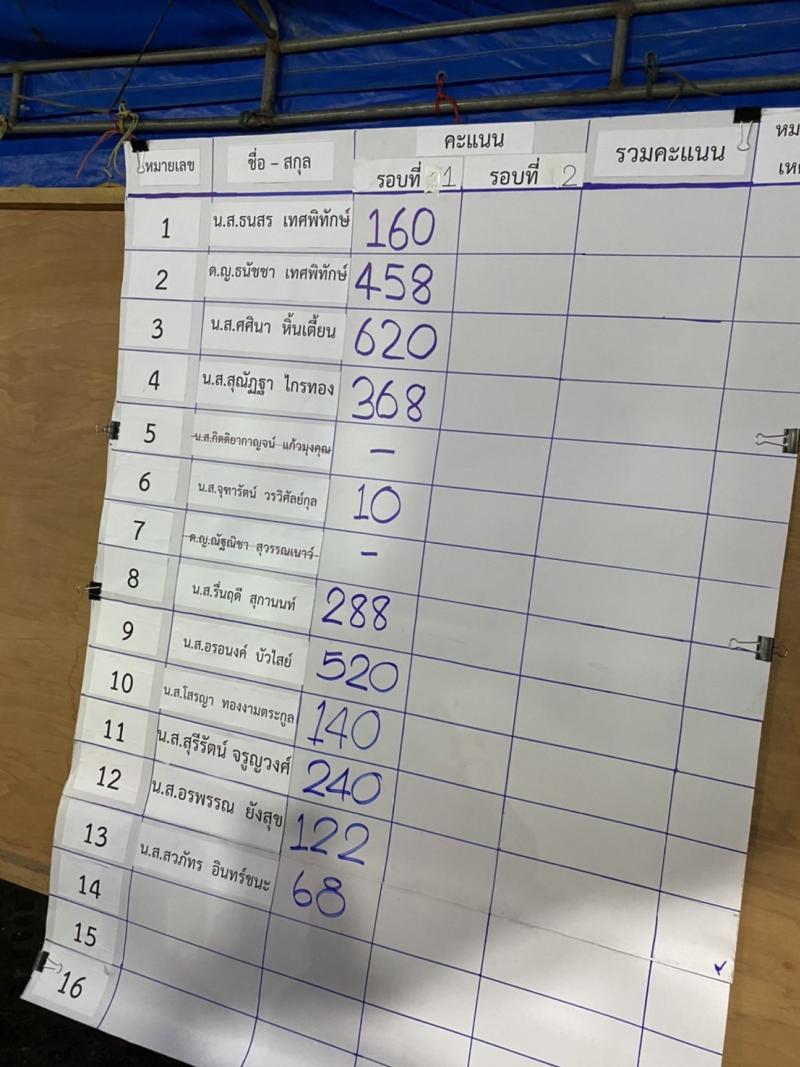 หมายเลข ชื่อ - สกุล คะแนน รวมคะแนน หมา
รอบที่ 1 รอบที่ 2 เหต
1 น.ส.ธนสร เทศพิทักษ์ 160
2 ด.ญ.ธนัชชา เทศพิทักษ์ 458
3 น.ส.ศศินา หิ้นเตี้ยน 620
4 น.ส.สุณัฏฐา ไกรทอง 368
5 น.ส.กิตติยากาญจน์ แก้วมุงคุณ -
6 น.ส.จุฑารัตน์ วรวิศัลย์กุล 10
7 ด.ญ.ณัฐณิชา สุวรรณเนาว์ -
8 น.ส.รื่นฤดี สุกานนท์ 288
9 น.ส.อรอนงค์ บัวไสย์ 520
10 น.ส.โสรญา ทองงามตระกูล 140
11 น.ส.สุรีรัตน์ จรูญวงศ์ 240
12 น.ส.อรพรรณ ยังสุข 122
13 น.ส.สวภัทร อินทร์ชนะ 68
14
15
16